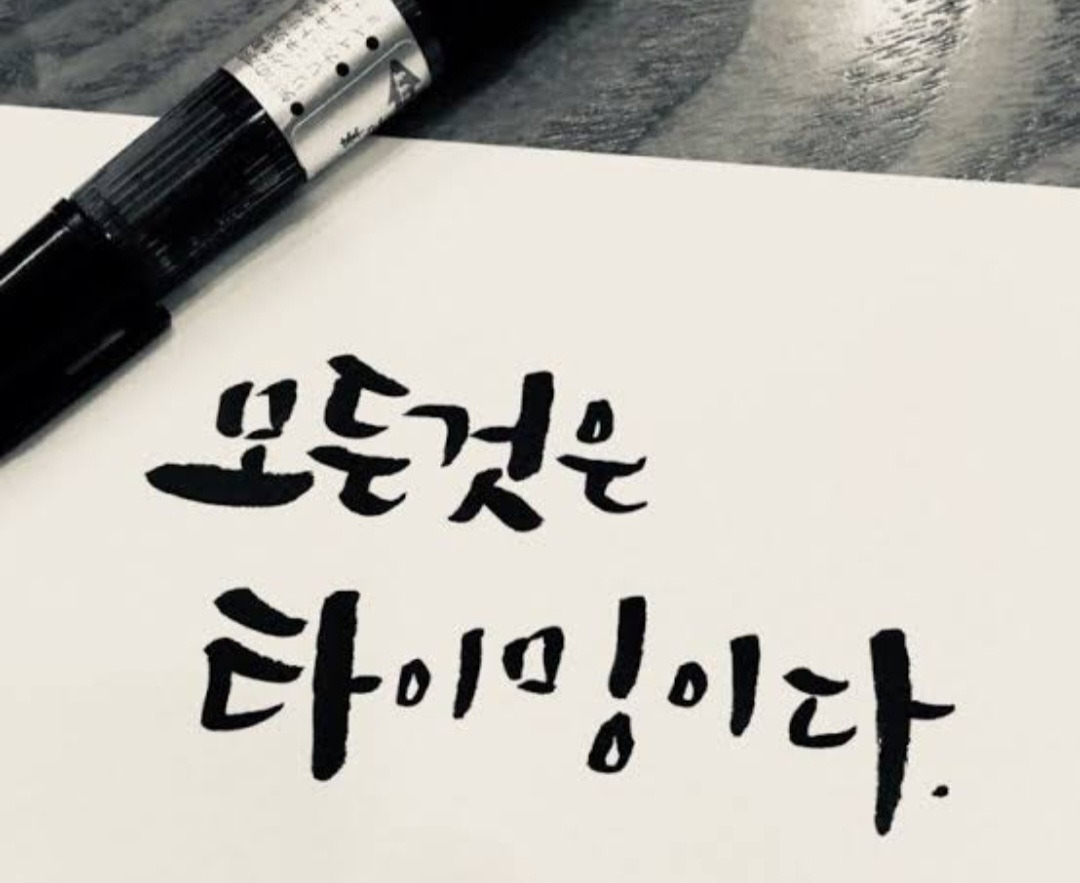 모든것은
타이밍이다.